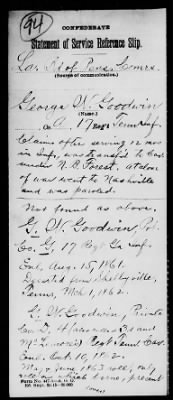 94
CONFEDERATE
Statement of Service Reference Slip.
La. Bd of Pens. Comrs.
(Source of communication.)
George W. Goodwin
(Name.)
Co. A. 17 Regt Tenn Inf.
Claims after serving 12 mos
in Inf, was transf'd to Cav
under N. B. Forest. At close
of war went to Nashville
and was paroled.
Not found as above.
G. W. Goodwin, Pvt.
Co. G, 17 Regt Tenn Inf.
Enl. Aug. 15, 1861.
Deserted from Shelbyville,
Tenn, Mch 1, 1862.
G. W. Goodwin, Private
Co. D, 4
McLemore's Regt Tenn Cav.
Enl. Oct. 10, 1862.
May & June 1863 roll, only
roll on which borne, present